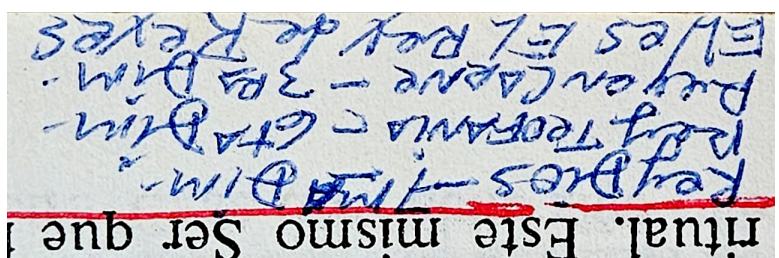 ritual. Este mismo Ser que
Rey Dios - 7ma Dim.
Rey TEOFANIA - 6TA Dim -
Rey en CARNE - 3RA Dim.
El es EL Rey de Reyes